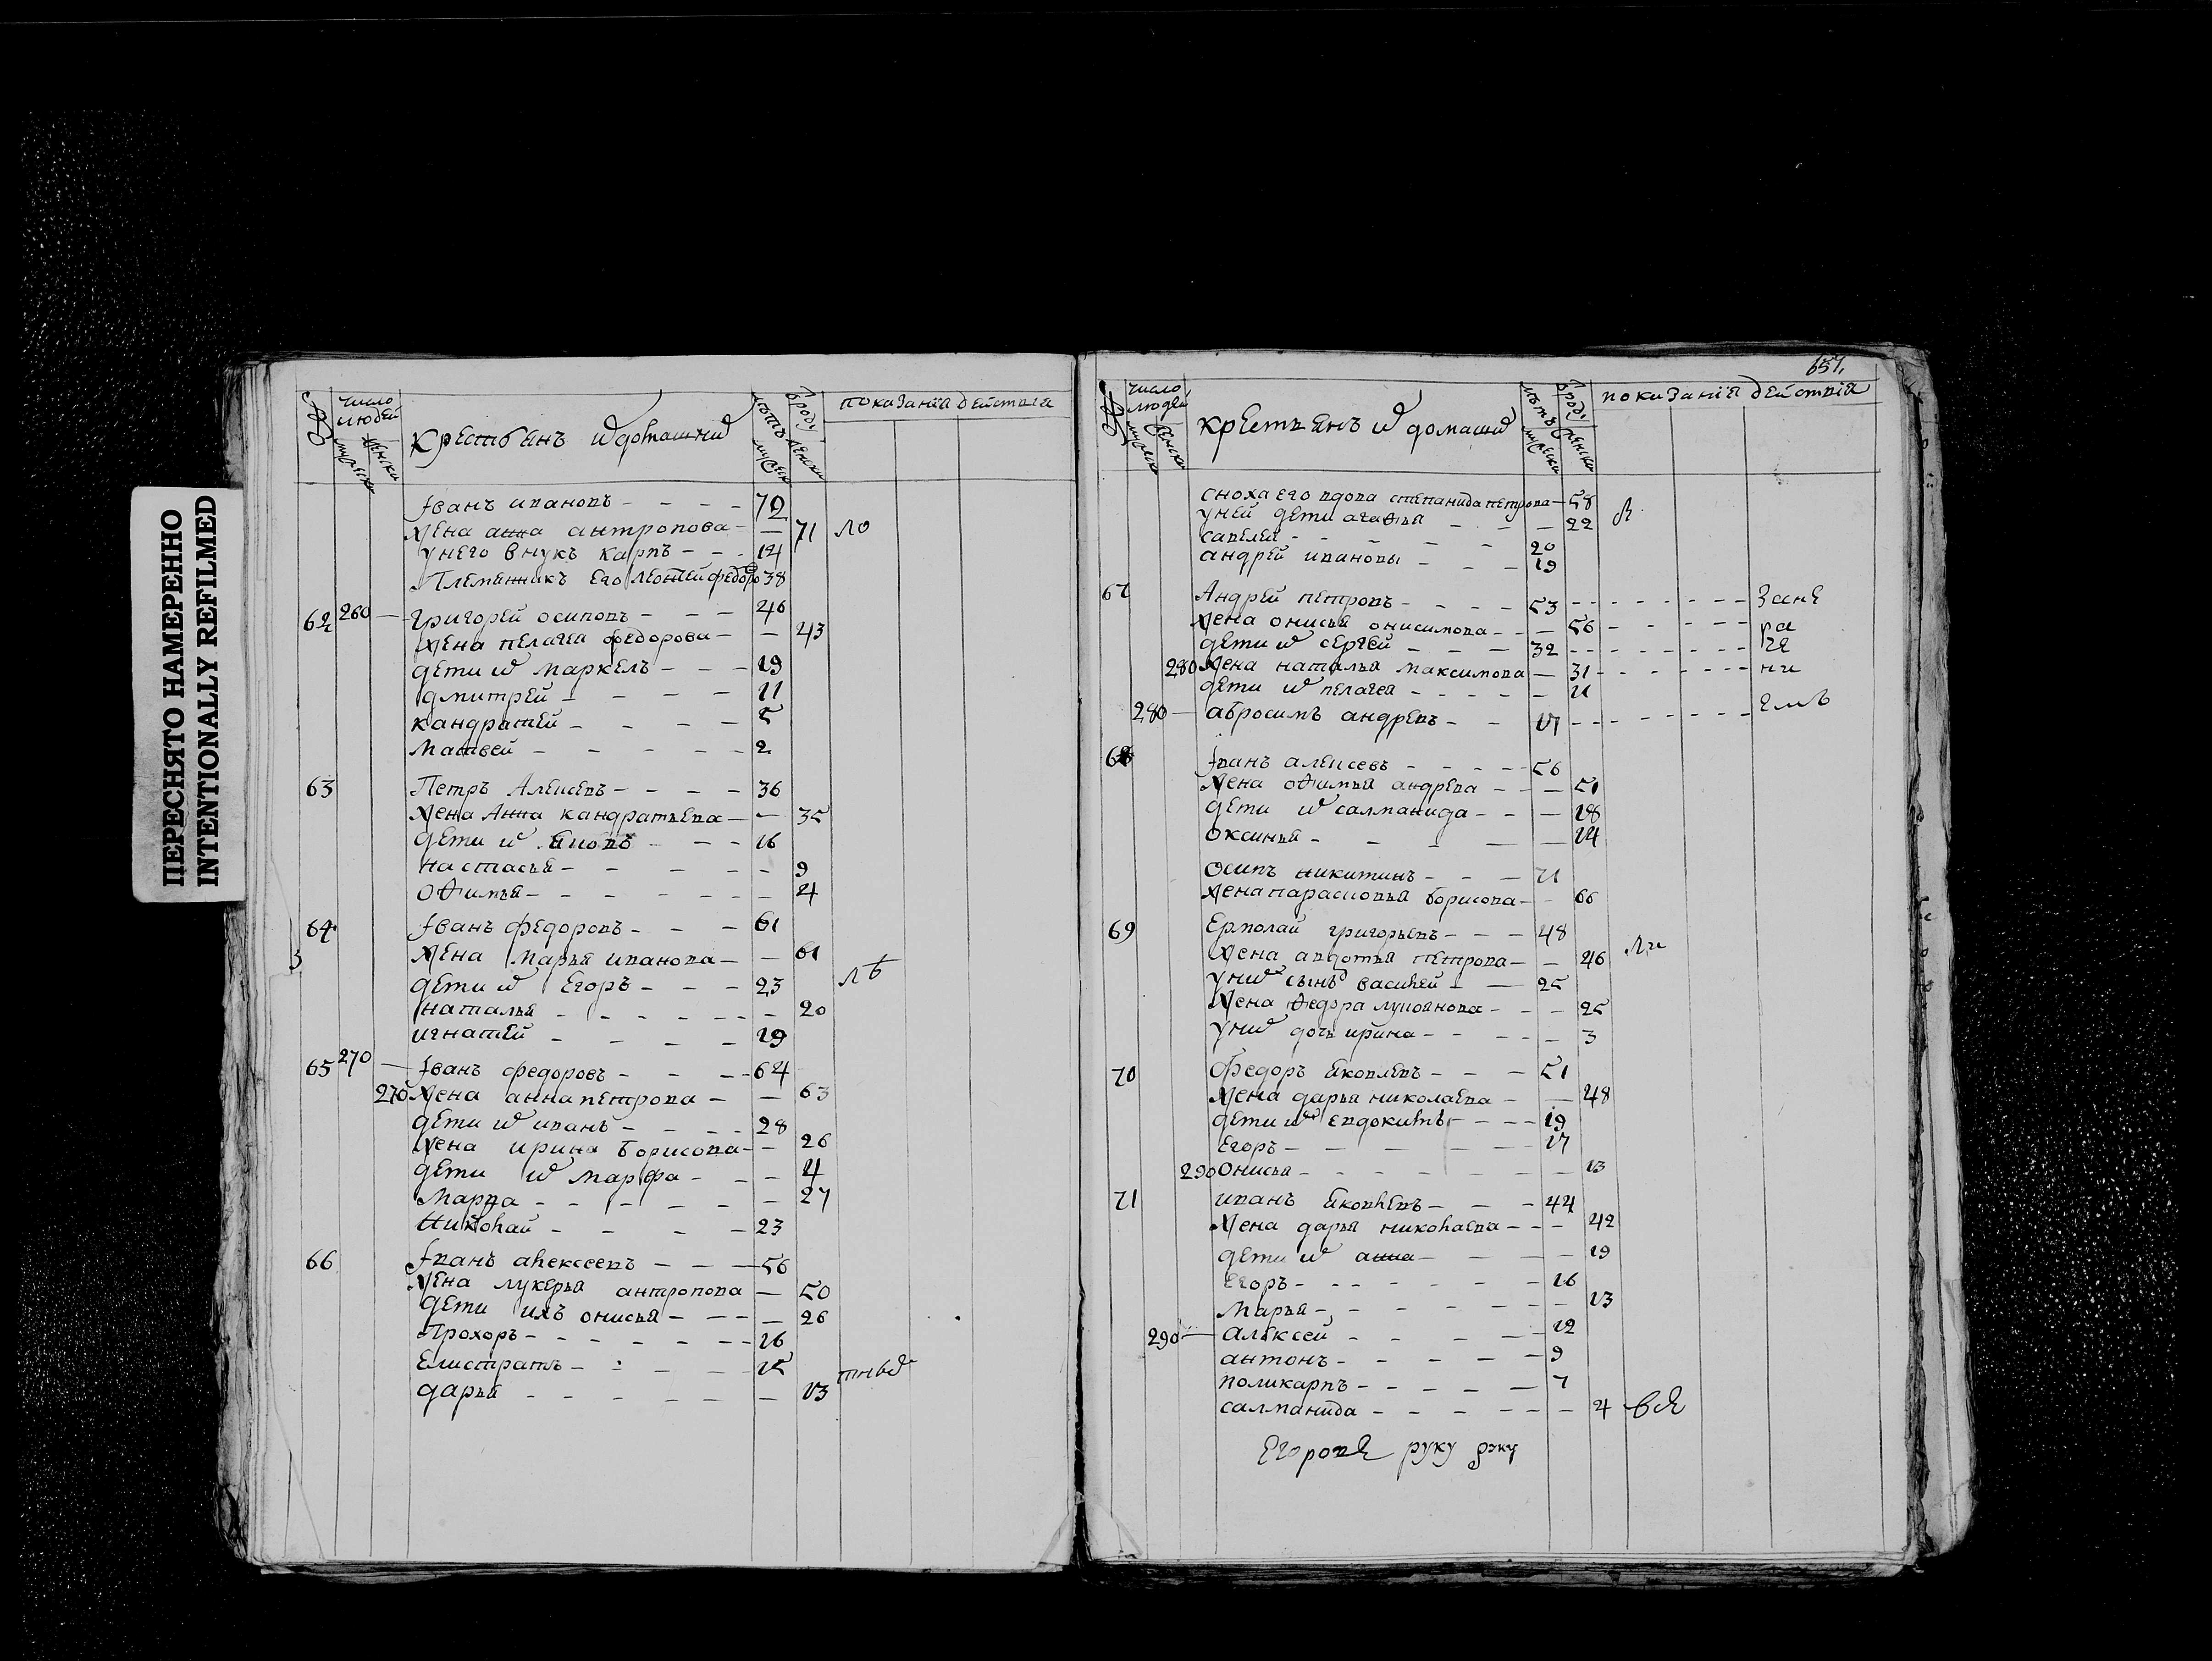 ПЕРЕСНЯТО НАМЕРЕННО
INTENTIONALLY REFILMED
число людей
мужеска женска
крестьянъ и домашнии
лѣтъ от роду
мужеска женска
показанїѧ действїѧ
Іванъ ивановъ - - - - 70
жена анна антропова - — 71 ло
унего внукъ карпъ - - - 14
Племянникъ его леонтей федоро 38
62 260 — григорей осиповъ - - - 46
жена пелагея федорова - — 43
дети их маркелъ - - - 19
дмитрей - - - - 11
кандратей - - - - 5
Матвей - - - - - 2
63 Петръ Алексевъ - - - - 36
жена Анна кандратьева - — 35
дети их - - 16
настасья - - - - - 9
офимья - - - - - - 4
64 Іванъ федоровъ - - - 61
жена Марья иванова - — 61
дети их Егоръ - - - 23 лѣ
наталья - - - - - - 20
игнатей - - - - 19
65 270 — Іванъ федоровъ - - - - 64
270 жена анна петрова - — 63
дети их иванъ - - - - 28
жена ирина борисова - - 26
дети их марфа - - - 4
Марѳа - - - - - - 27
Николай - - - - 23
66 Іванъ алексеевъ - - - 56
жена лукерья антропова — 50
дети ихъ онисья - - - — 26
Прохоръ - - - - - - - 16
Елистратъ - - - - - 15
дарья - - - - - — 13
657
число людей
мужеска женска
крестьянъ и домашнии
лѣтъ от роду
мужеска женска
показанїѧ действїѧ
сноха его вдова степанида петрова - 58
уней дети агафья - - - — 22
савелей - - - - - 20
андрей ивановы - - - 19
67 Андрей петровъ - - - - 53 - - - - - - - - зане
жена онисья онисимова - - — 56 - - - - - - ра
дети их сергей - - - 32 - - - - - - - - че
280 жена наталья максимова — 31 - - - - - - - ни
дети их пелагея - - - - — 11
280 — абросимъ андревъ - - 17 - - - - - - - - емъ
68 Іванъ алексевъ - - - - - 56
жена офимья андрева - - — 51
дети их салманида - - — 18
оксинья - - - - — 14
осипъ никитинъ - - - 71
жена парасковья борисова - - 66
69 Ермолай григорьевъ - - - 48
жена авдотья петрова - — 46 ли
уних сынъ василей - — 25
жена федора лукоянова - - - 25
уних дочь ирина - - - - - 3
70 Федоръ яковлевъ - - - 51
жена дарья николаева - — 48
дети их евдокимъ - - - - 19
Егоръ - - - - - - 17
290 онисья - - - - - - - — 13
71 иванъ яковлевъ - - - 44
жена дарья николаева - - - 42
дети их анна - - - - 19
Егоръ - - - - - - - 16
Марья - - - - - - - - 13
290 — алексей - - - - - 12
антонъ - - - - - 9
поликарпъ - - - - - 7
салманида - - - - - - - 4
руку